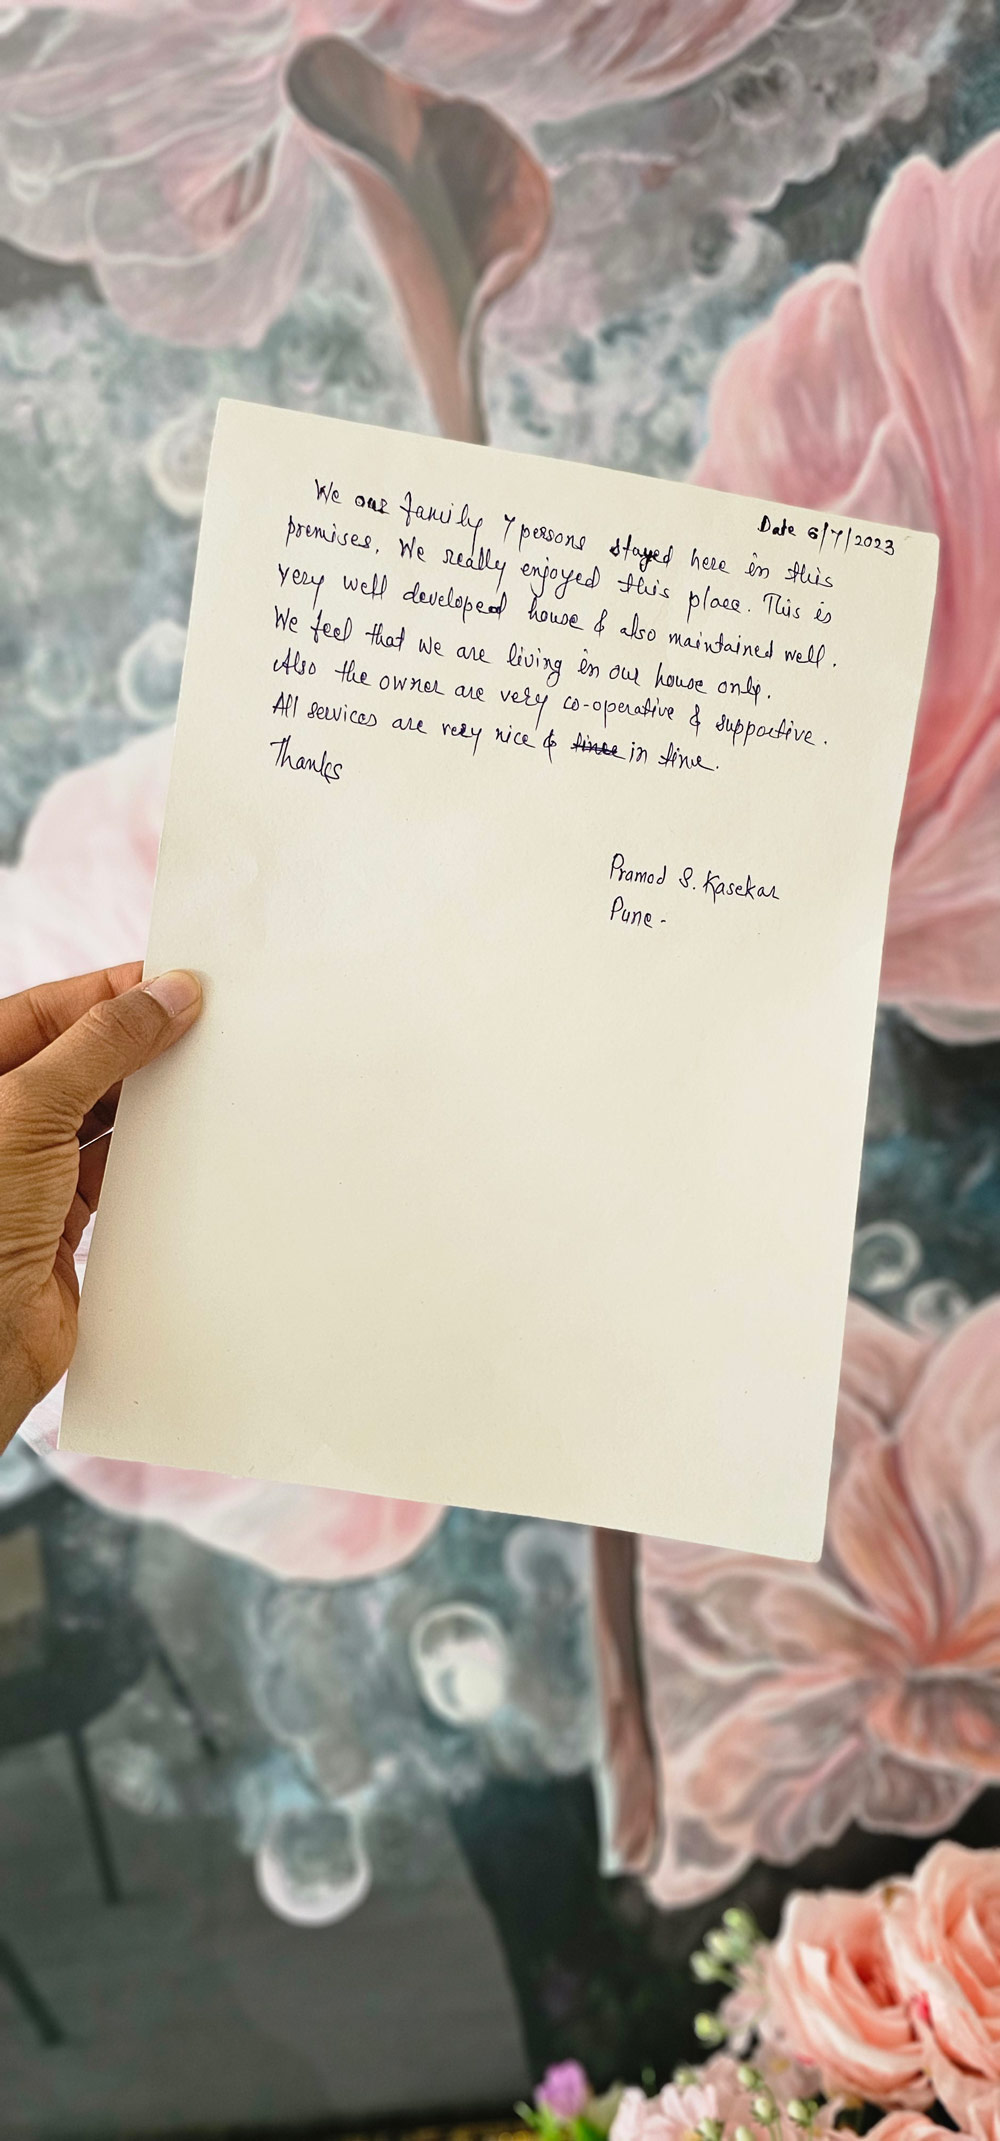 Date 6/7/2023
We our family 7 persons stayed here in this
premises. We really enjoyed this place. This is
very well developed house & also maintained well.
We feel that we are living in our house only.
Also the owner are very co-operative & supportive.
All services are very nice & in time.
Thanks
Pramod S. Kasekar
Pune-